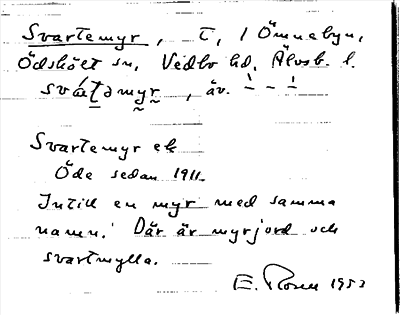 Svartemyr, t, i Ömnebyn,
Ödskölt sn, Vedbo hd, Älvsb. l.
svátəmyr, äv. ̀ - - ́
Svartemyr ek
Öde sedan 1911.
Intill en myr med samma
namn. Där är myrjord och
svartmylla.
E. Rosen 1953